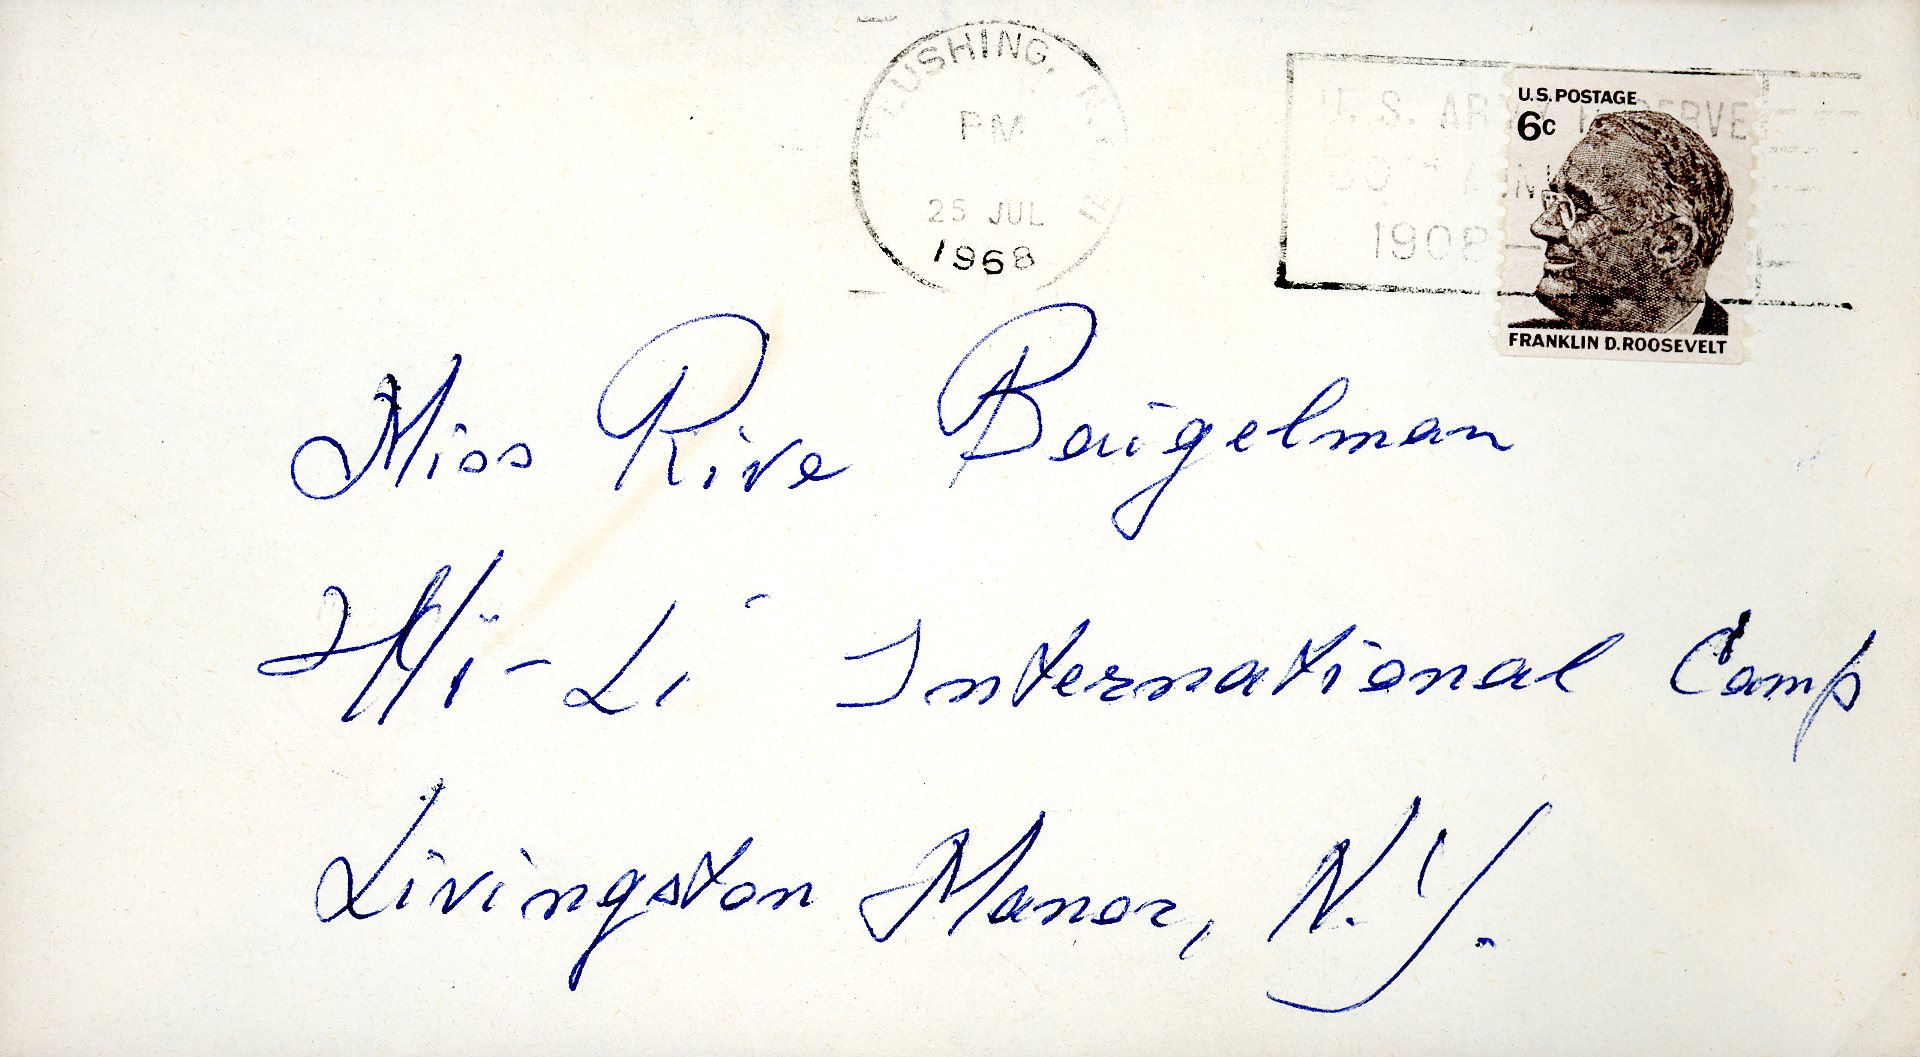 FLUSHING, N.Y.
PM
25 JUL
1968
U. S. ARMY RESERVE
1908 –
U.S. POSTAGE
6c
FRANKLIN D. ROOSEVELT
Miss Rive Baigelman
Hi-Li International Camp
Livingston Manor, N.Y.